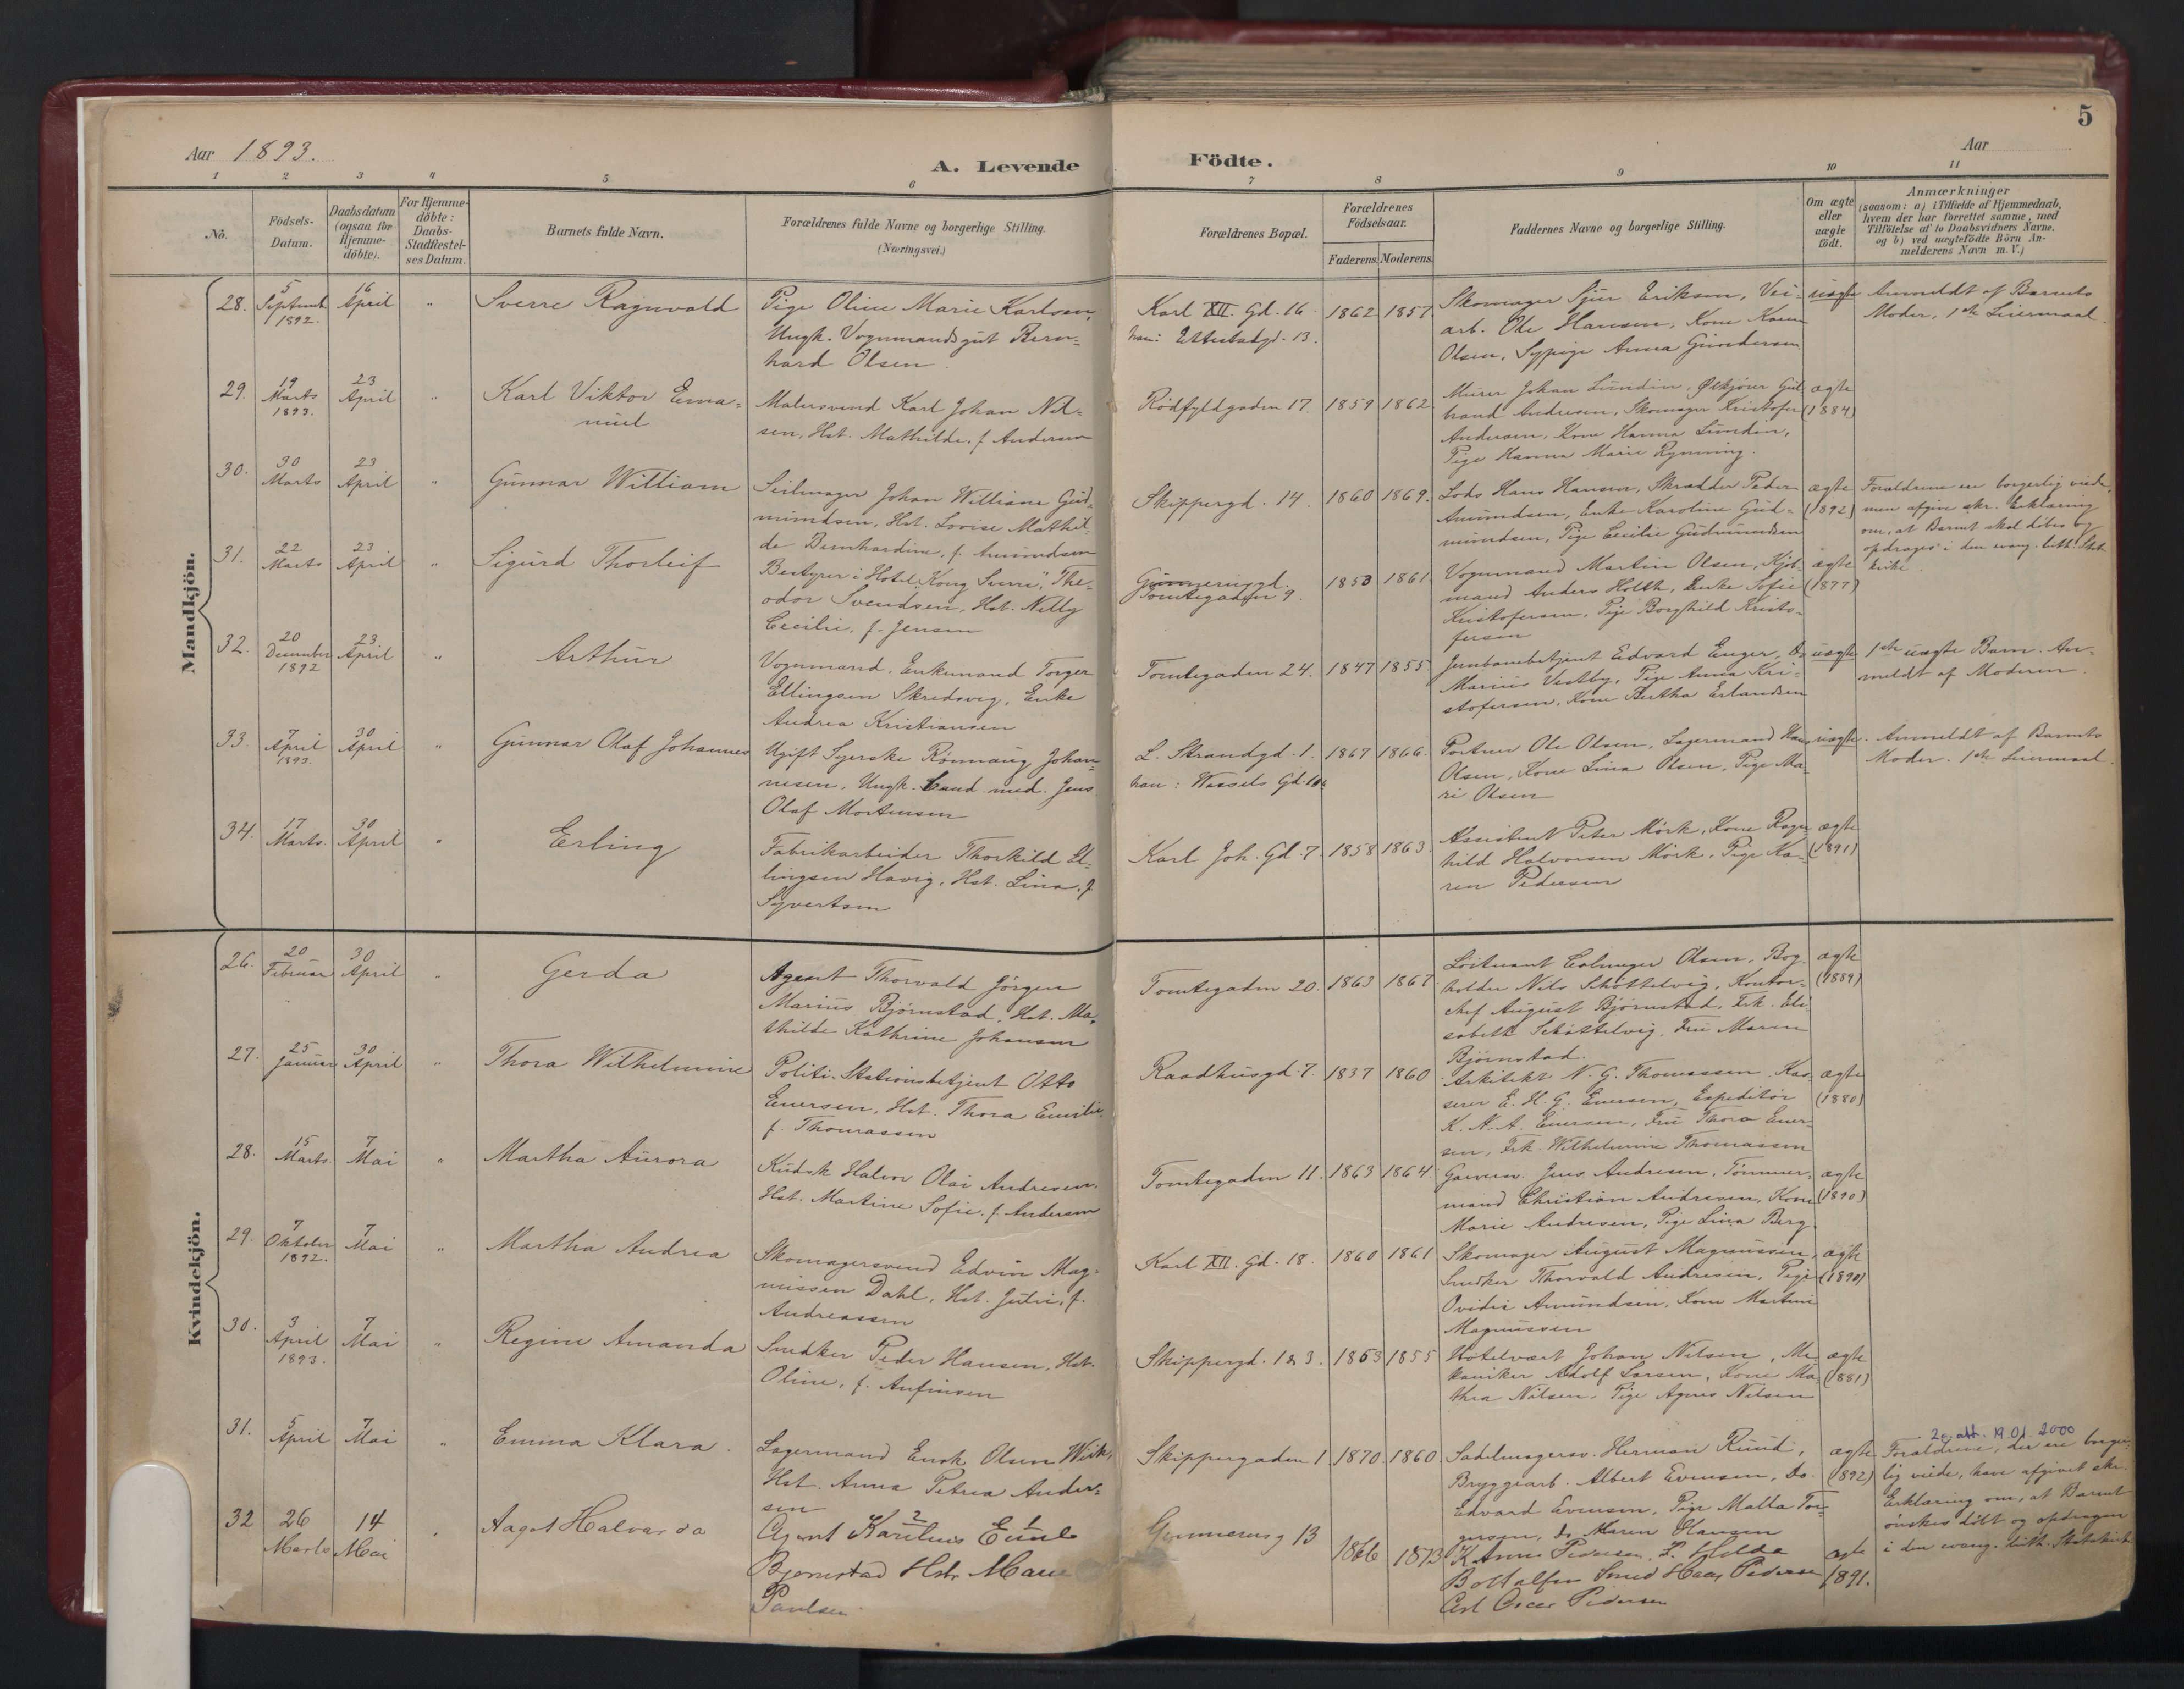 5
Aar 1893.
A. Levende Födte.
Aar
1 2 3 4 5 6 7 8 9 10 11
No.
Födsels-
Datum.
Daabsdatum
(ogsaa for
Hjemme-
döbte).
For Hjemme-
döbte:
Daabs-
Stadfæstel-
ses Datum.
Barnets fulde Navn.
Forældrenes fulde Navne og borgerlige Stilling.
(Næringsvei.)
Forældrenes Bopæl.
Forældrenes
Födselsaar.
Faderens. Moderens.
Faddernes Navne og borgerlige Stilling.
Om ægte
eller
uægte
födt.
Anmærkninger
(saasom: a) i Tilfælde af Hjemmedaab,
hvem der har forrettet samme, med
Tilföielse af to Daabsvidners Navne.
og b) ved uægtefödte Börn An-
melderens Navn m. V.)
Mandkjön.
28.
5
Septemb.
1892.
16
April
"
Sverre Ragnvald
Pige Oline Marie Karlsen,
Ungk. Vognmandsgut Bern-
hard Olsen
Karl XII. Gd. 16
han: Ettestadgd. 13.
1862 1857.
Skomager Sjur Eriksen, Vei-
arb. Ole Hansen, Kone Karen
Olsen, Sypige Anna Gundersen
uægte
Anmeldt af Barnets
Moder, 1ste Leiermaal.
29.
19
Marts
1893.
23
April
"
Karl Viktor Ema-
nuel
Malersvend Karl Johan Nil-
sen, Hst. Mathilde, f. Andersen
Rødfyldgaden 17.
1859 1862
Murer Johan Lundin, Ølkjører Gul-
brand Andresen, Skomager Kristofer
Andersen, Kone Hanna Lundin,
Pige Hanna Marie Rynning.
ægte
(1884)
30.
30
Marts
23
April
"
Gunnar William
Seilmager Johan William Gud-
mundsen, Hst. Lovise Mathil-
de Bernhardine, f. Amundsen
Skippergd. 14.
1860 1869.
Lods Hans Hansen, Skrædder Peder
Amundsen, Enke Karoline Gud-
mundsen, Pige Cecilie Gudmundsen
ægte
(1892)
Forældrene ere borgerlig viede,
men afgive skr. Erklæring
om, at Barnet skal döbes og
opdrages i den evang. luth. Stats-
kirke.
31.
22
Marts
23
April
"
Sigurd Thorleif
Bestyrer i Hotel "Kong Sverre", The-
odor Svendsen, Hst. Nelly
Cecilie, f. Jensen
Tomtegaden 9.
1853 1861.
Vognmand Martin Olsen, Kjöb-
mand Anders Holth, Enke Sofie
Kristofersen, Pige Borghild Kristo-
fersen
ægte
(1877)
32.
20
December
1892
23
April
"
Arthur
Vognmand, Enkemand Torger
Ellingsen Skredsvig, Enke
Andrea Kristiansen
Tomtegaden 24.
1847 1855
Jernbanebetjent Edvard Enger, Do
Marius Vestby, Pige Anna Kri-
stofersen, Kone Bertha Erlandsen
uægte
1ste uægte Barn. An-
meldt af Moderen.
33.
7
April
1893.
30
April
"
Gunnar Olaf Johannes
Ugift Syerske Rönnaug Johan-
nesen, Ungk. Cand. med. Jens
Olaf Mortensen
L. Strandgd. 1.
han: Wessels Gd.
1867 1866.
Portner Ole Olsen, Lagermand Hans
Olsen, Kone Lina Olsen, Pige Ma-
ri Olsen
uægte.
Anmeldt af Barnets
Moder. 1ste Leiermaal.
34.
17
Marts
30
April
"
Erling
Fabrikarbeider Thorkild El-
lingsen Havig, Hst. Lina, f.
Syvertsen
Karl Joh. Gd. 7.
1858 1863.
Assistent Peter Mörk, Kone Ragn-
hild Halvorsen Mörk, Pige Ka-
ren Pedersen
ægte
(1891)
Kvindekjön.
26.
20
Februar
30
April
"
Gerda
Agent Thorvald Jörgen
Marius Björnstad, Hst. Ma-
thilde Kathrine Johansen
Tomtegaden 20.
1863 1867.
Löitnant Olsen, Bog-
holder Nils Schöttelvig, Kontor-
chef August Björnstad, Frk. Eli-
sabeth Schöttelvig, Fru Maren
Björnstad.
ægte
(1889)
27.
25
Januar
30
April
"
Thora Wilhelmine
Politi-Stationsbetjent Otto
Enersen, Hst. Thora Emilie,
f. Thomassen
Raadhusgd. 7.
1837 1860
Arkitekt N. G. Thomassen, Kas-
serer E. H. G. Enersen, Expeditör
K. A. A. Enersen, Fru Thora Ener-
sen, Frk. Wilhelmine Thomassen
ægte
(1880)
28.
15
Marts
7
Mai
"
Martha Aurora
Kudsk Halvor Olai Andresen,
Hst. Martine Sofie, f. Andersen
Tomtegaden 11.
1863 1864.
Garversv. Jens Andresen, Tömmer-
mand Christian Andresen, Kone
Marie Andresen, Pige Lina Berg.
ægte
(1890)
29.
7
Oktober
1892.
7
Mai
"
Martha Andrea
Skomagersvend Edvin Mag-
nussen Dahl, Hst. Julie, f.
Andreassen
Karl XII. Gd. 18.
1860 1861
Skomager August Magnussen,
Snedker Thorvald Andresen, Pige
Ovidie Amundsen, Kone Martine
Magnussen
ægte
(1890)
30.
3
April
1893.
7
Mai
"
Regine Amanda
Snedker Peder Hansen, Hst.
Oline, f. Anfinsen
Skippergd. 1 & 3.
1863 1855
Hotelvært Johan Nilsen, Me-
kaniker Adolf Larsen, Kone Ma-
thea Nilsen, Pige Agnes Nilsen
ægte
(1881)
31.
5
April
7
Mai
"
Emma Klara.
Lagermand Enok Olsen Wik,
Hst. Anna Petrea Ander-
sen
Skippergaden 1
1870. 1860.
Sadelmagersv. Herman Ruud,
Bryggearb. Albert Evensen, Do.
Edvard Evensen, Pige Malla Tor-
gersen, do Maren Hansen
ægte
(1892)
2 att. 19.01.2000
Forældrene, der ere borger-
lig viede, have afgivet skr.
Erklæring om, at Barnet
önskes döbt og opdragen
i den evang. luth. Statskirke
32
26
Marts
14
Mai
"
Aagot Halvarda
2 1
Agent Karelius Emil
Bjørnstad Hstr Marie
Paulsen
Grønnerensg 13
1866 1873
K Anna Pedersen, F. Hilda
Smed Haas Pedersen
Carl Oscar Pedersen
ægte
1891.